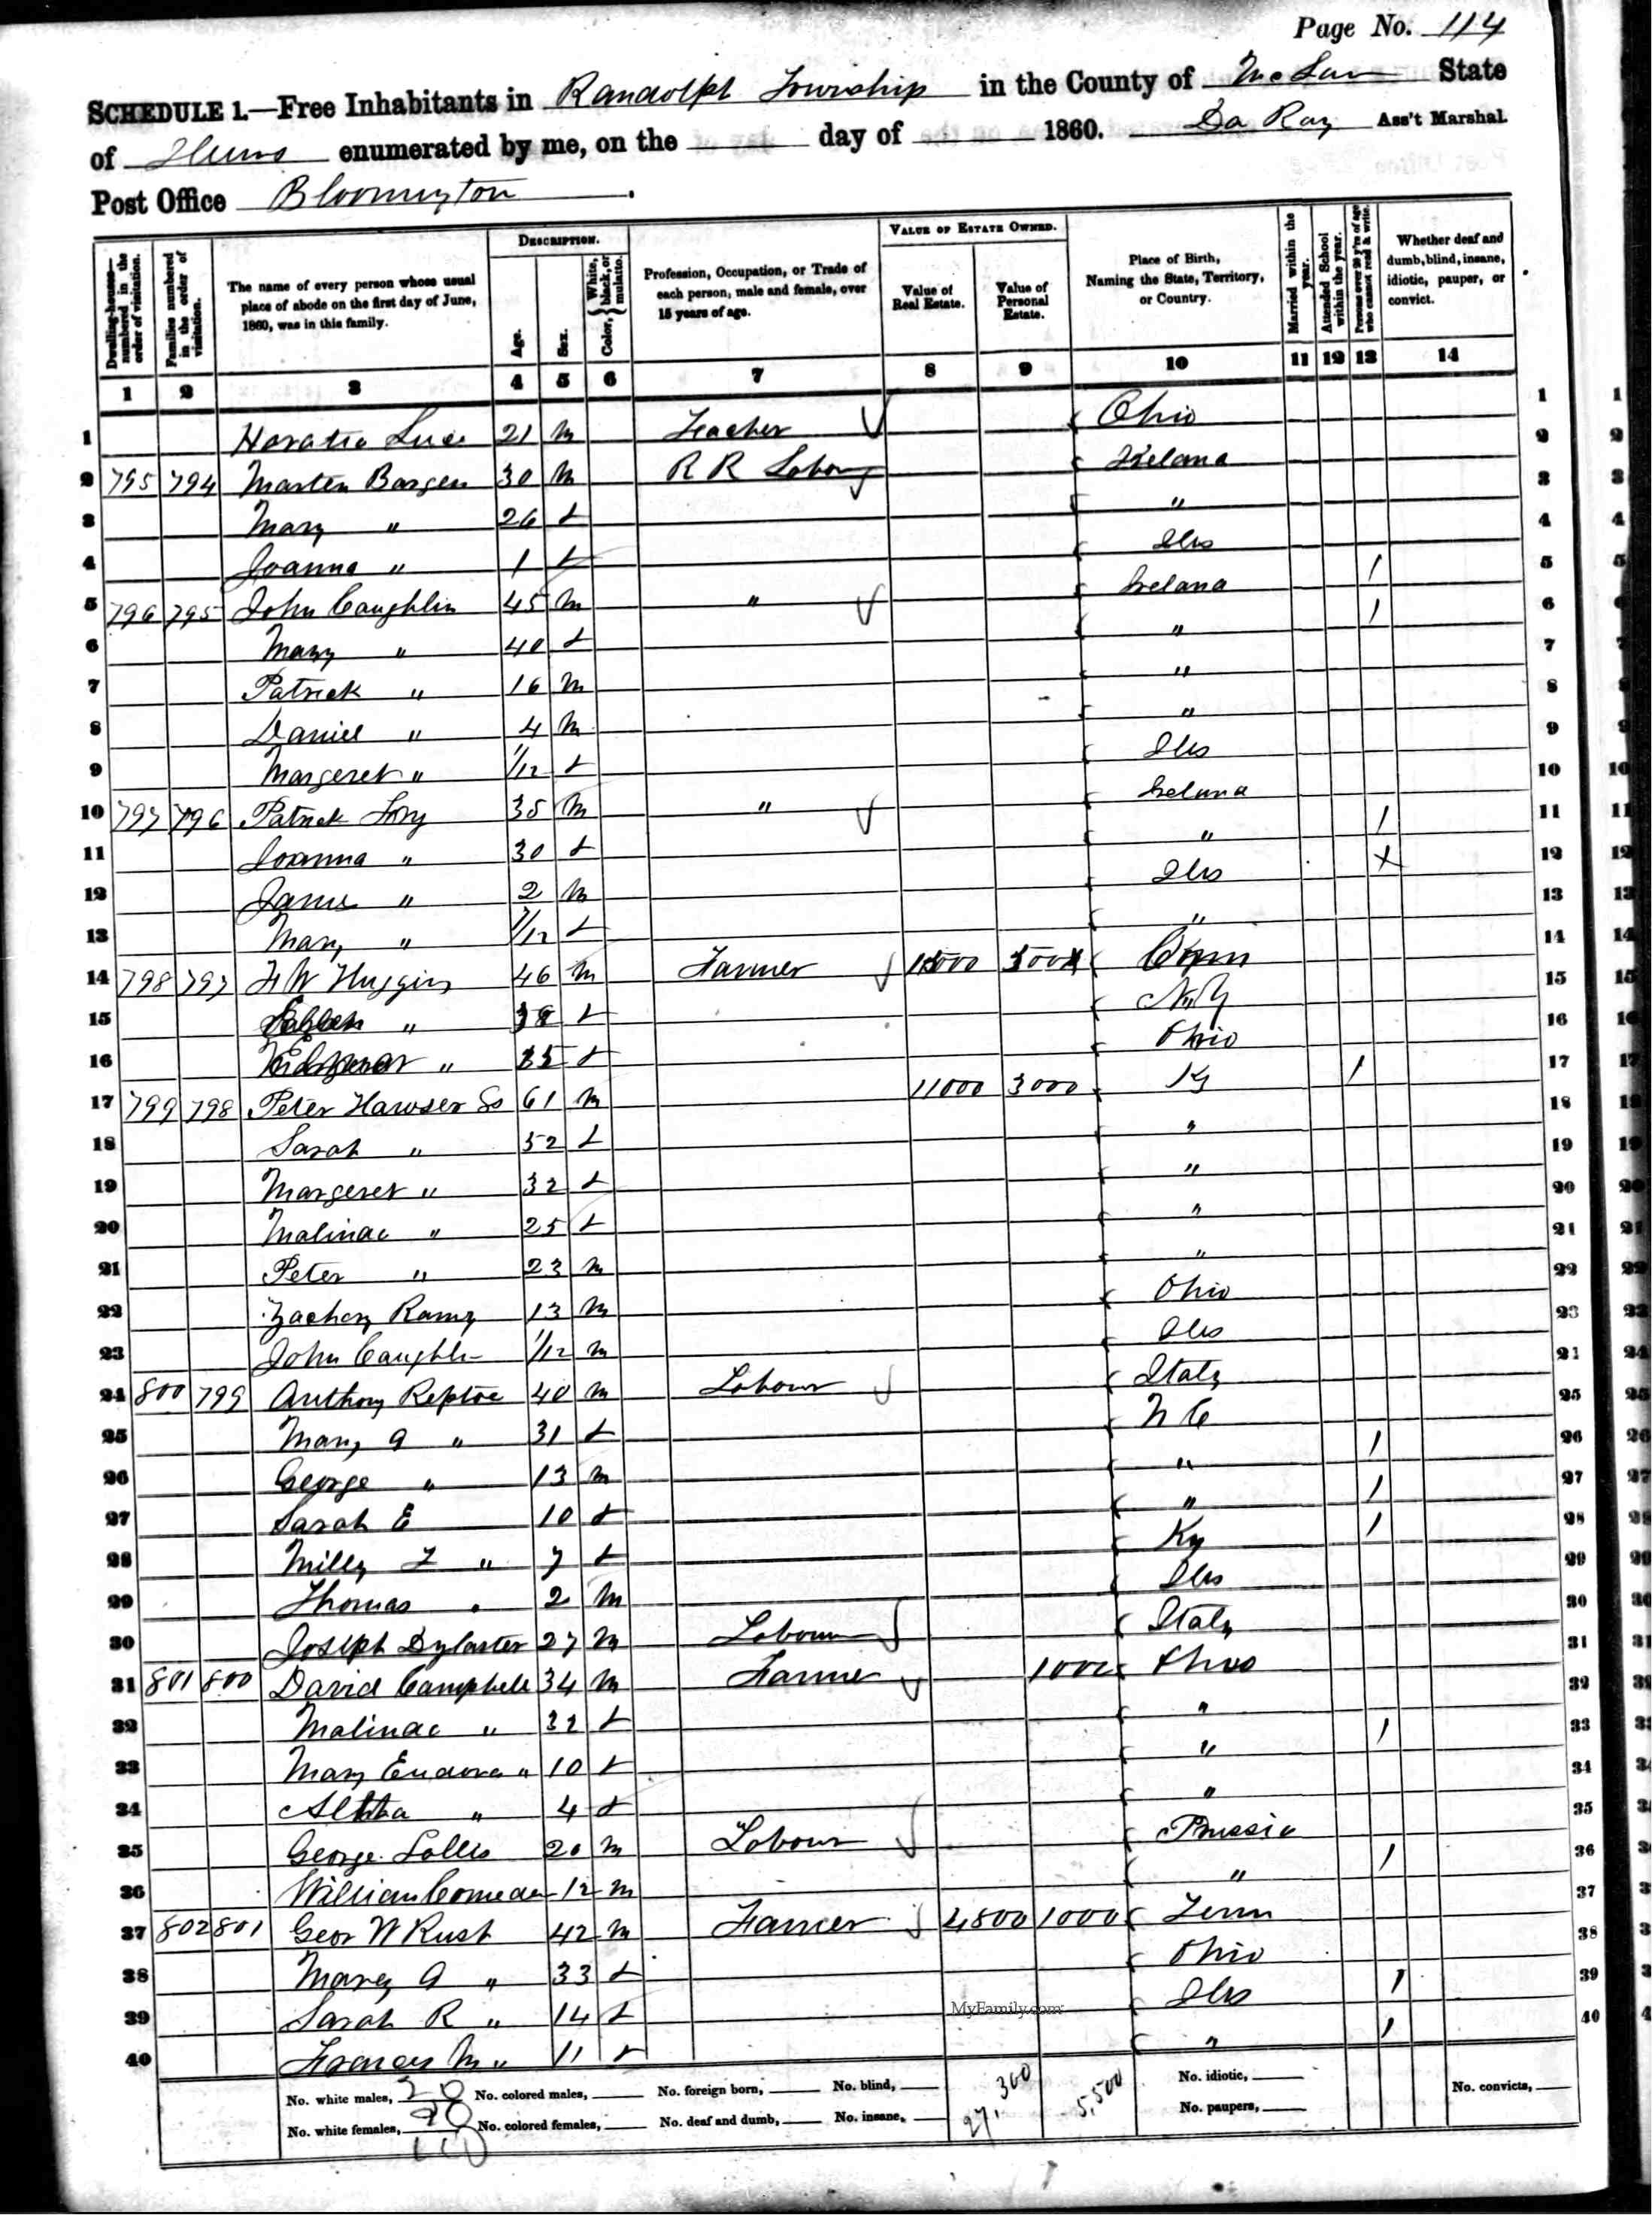 Page No. 114
SCHEDULE 1.—Free Inhabitants in Randolph Township in the County of McLean State
of Illinois enumerated by me, on the day of 1860. Ass't Marshal.
Post Office Bloomington
DESCRIPTION. VALUE OF ESTATE OWNED.
Dwelling-houses—numbered in the order of visitation. Families numbered in the order of visitation. The name of every person whose usual place of abode on the first day of June, 1860, was in this family. Age. Sex. Color, {White, black, or mulatto. Profession, Occupation, or Trade of each person, male and female, over 15 years of age. Value of Real Estate. Value of Personal Estate. Place of Birth, Naming the State, Territory, or Country. Married within the year. Attended School within the year. Persons over 20 y'rs of age who cannot read & write. Whether deaf and dumb, blind, insane, idiotic, pauper, or convict.
1 2 3 4 5 6 7 8 9 10 11 12 13 14
1 Horatio Luce 21 m Teacher Ohio 1
2 795 794 Marten 30 m R R Ireland 2
3 Mary " 26 f " 3
4 Joanna " 1 f Ills 4
5 796 795 John Caughlin 45 m " Ireland / 5
6 Mary " 40 f " / 6
7 Patrick " 16 m " 7
8 Daniel " 4 m " 8
9 Margeret " 1/12 f Ills 9
10 797 796 Patrick 35 m " Ireland 10
11 Joanna " 30 f " / 11
12 James " 2 m Ills 12
13 Mary " f " 13
14 798 797 W Huggins 46 m Farmer 14
15 " f N.Y 15
16 " f Ohio 16
17 799 798 Peter Hawser 61 m 11000 3000 Ky 17
18 Sarah " 52 f " 18
19 Margeret " 32 f " 19
20 Malinda " 25 f " 20
21 Peter " 23 m " 21
22 Zachery Ramy 13 m Ohio 22
23 John 1/12 m Ills 23
24 800 799 Anthony Reptoe 40 m Labour Italy
25 Mary A " 31 f N C 25
26 George " 13 m " / 26
27 Sarah E 10 f " / 27
28 Milly " 7 f Ky / 28
29 Thomas " 2 m Ills 29
30 Joseph 27 m Labour Italy 30
31 801 800 David Campbell 34 m Farmer 1000 Ohio 31
32 Malinda " 32 f " 32
33 Mary Eudora " 10 f " / 33
34 " 4 f " 34
35 George 20 m Labour Prussia 35
36 William 12 m " / 36
37 802 801 Geor W Rust 42 m Farmer 4800 1000 Tenn 37
38 Mary A " 33 f Ohio 38
39 Sarah R " 14 f Ills / 39
40 Frances M " 11 f " / 40
MyFamily.com
No. white males, 20 No. colored males, No. foreign born, No. blind, No. idiotic, No. convicts,
No. white females, 20 No. colored females, No. deaf and dumb, No. insane, 27,300 5,500 No. paupers,